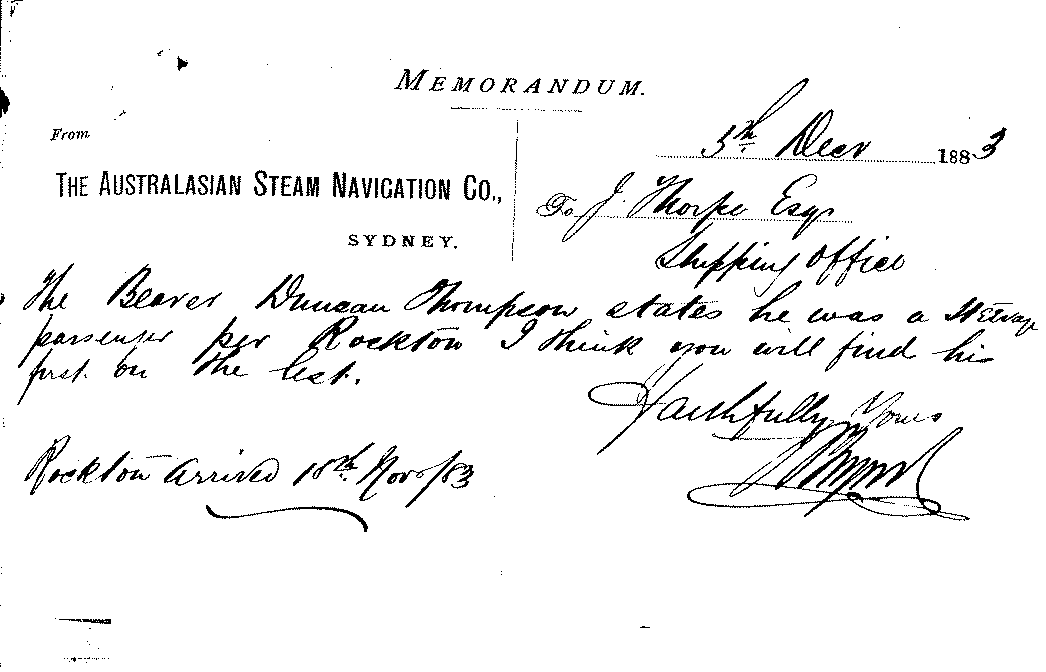 MEMORANDUM.
From
THE AUSTRALASIAN STEAM NAVIGATION CO.,
SYDNEY.
5th Decr 1883
To J. Thorpe Esqr
Shipping Office
The Bearer Duncan Thompson states he was a Steerage
passenger per Rockton I think you will find him
first on the list.
Faithfully Yours
Rockton arrived 18th Nov/83